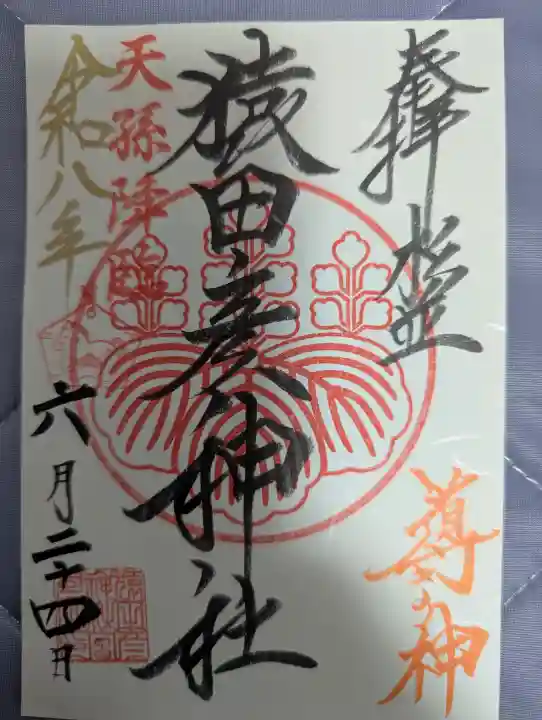 奉拝 杉並
導きの神
猿田彦神社
天孫降臨
令和八年
六月二十四日